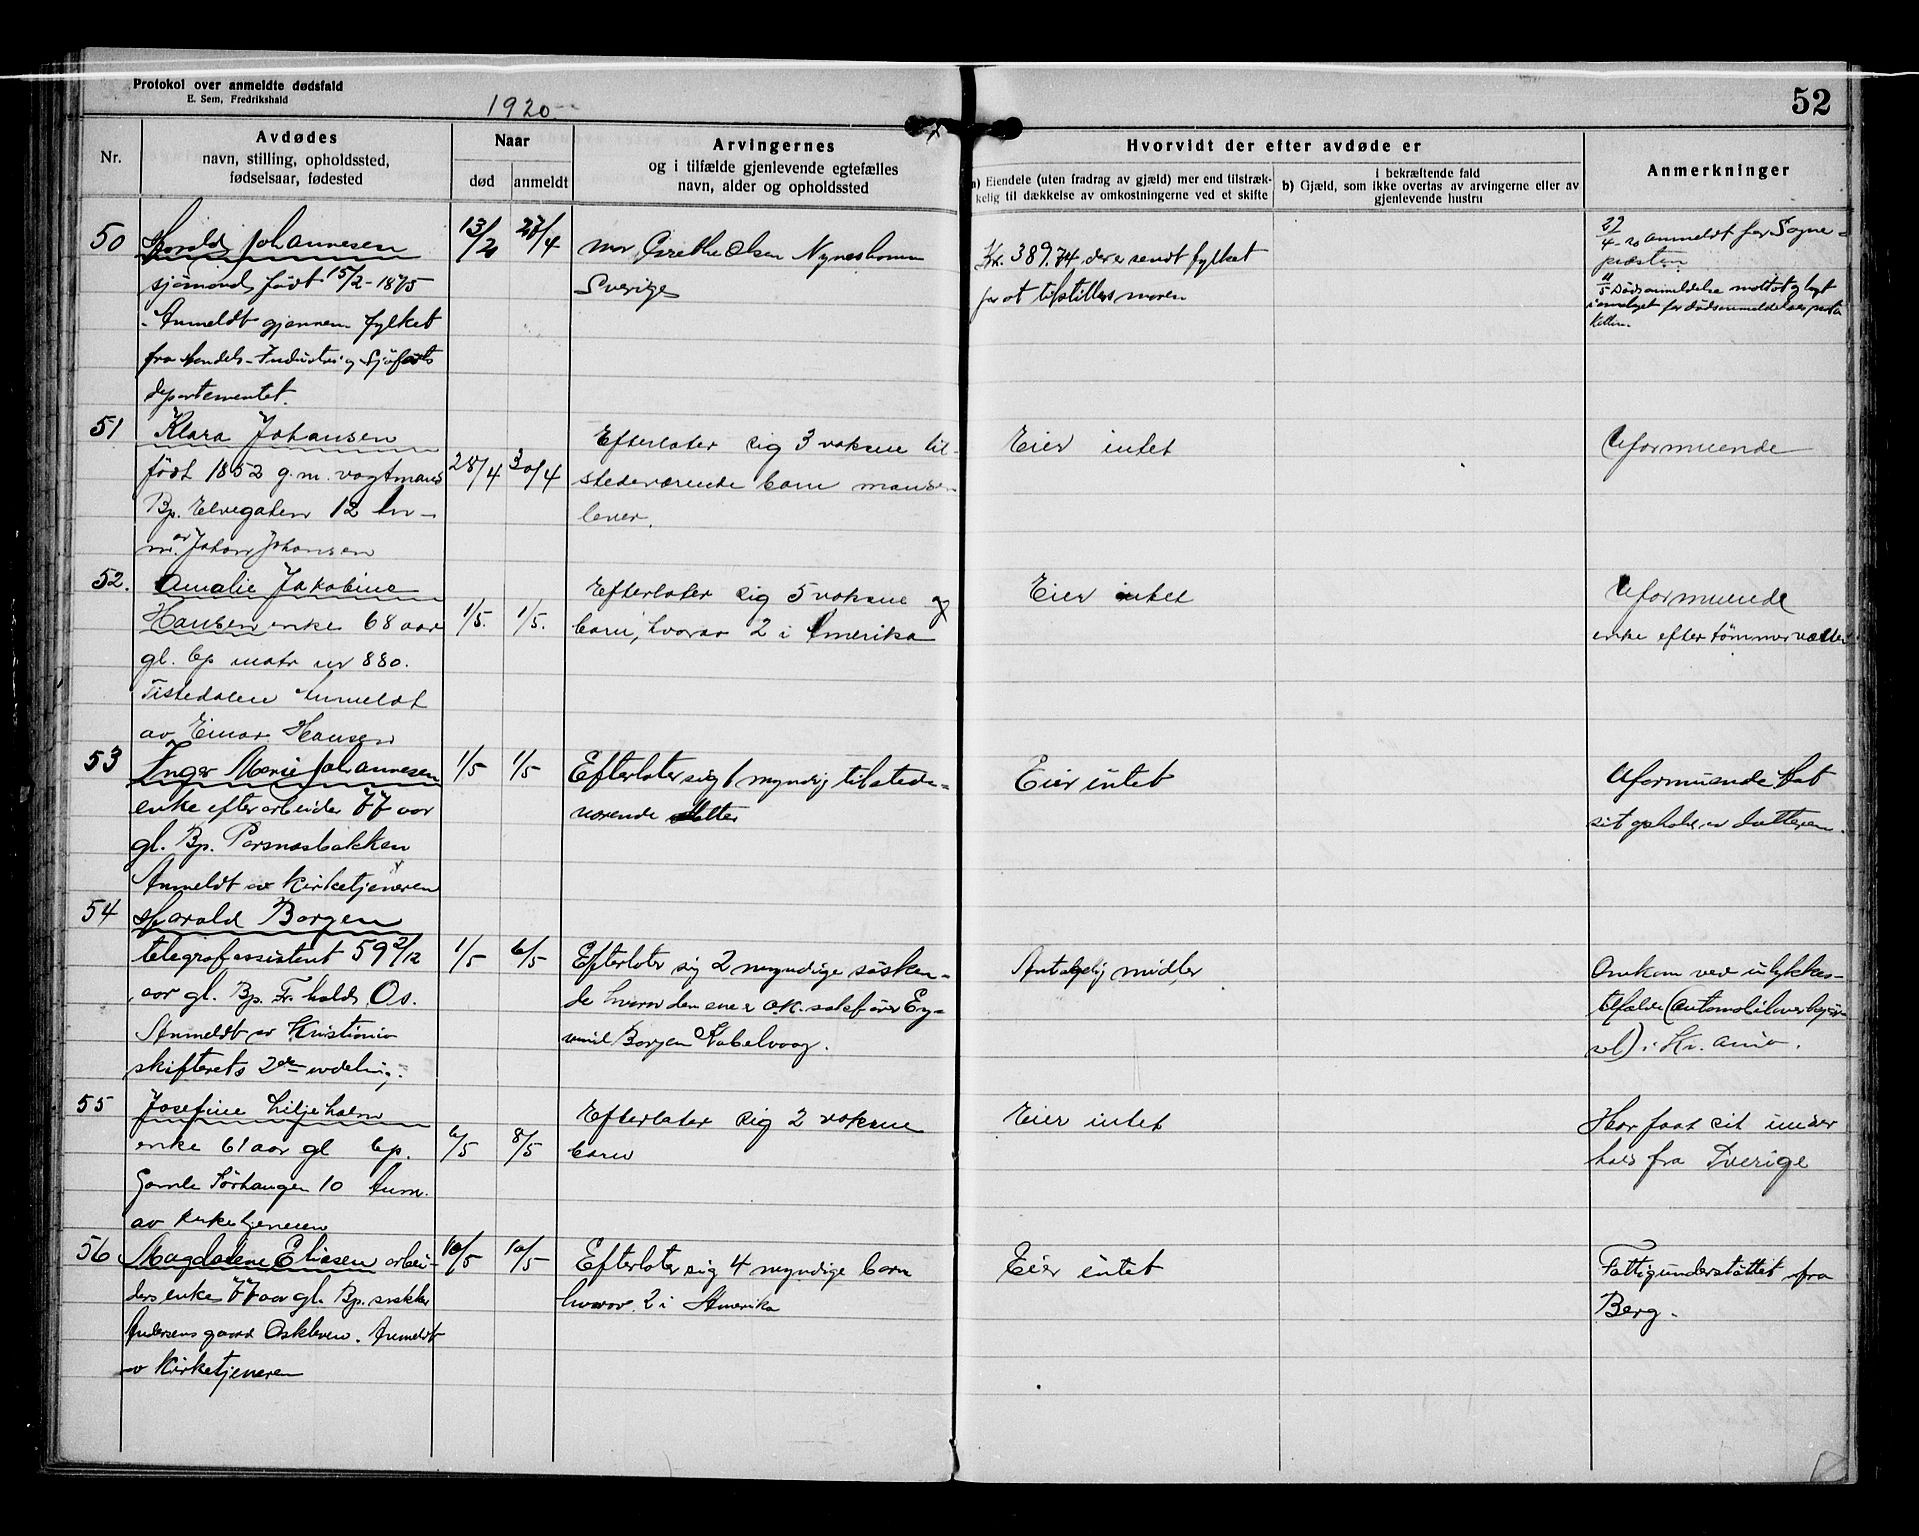 Protokol over anmeldte dødsfald
E. Sem, Fredrikshald
1920
52
Nr.
Avdødes
navn, stilling, opholdssted,
fødselsaar, fødested
Naar
død
anmeldt
Arvingernes
og i tilfælde gjenlevende egtefælles
navn, alder og opholdssted
Hvorvidt der efter avdøde er
a) Eiendele (uten fradrag av gjæld) mer end tilstræk-
kelig til dækkelse av omkostningerne ved et skifte
i bekræftende fald
b) Gjæld, som ikke overtas av arvingerne eller av
gjenlevende hustru
Anmerkninger
50
Harald Johannesen
sjømand født 15/2-1875
Anmeldt gjennem fylket
fra Handels-Industri og Sjøfarts
departementet.
13/2
27/4
mor Grethe Olsen Nyneshamn
Sverige
Kr. 389.74 der er sendt fylket
for at tilstilles moren
27/4-20 anmeldt for Sogne-
præsten
11/5 Dødsanmeldelse mottat og lagt
i omslaget for dødsanmeldelses proto
kollen.
51
Klara Johansen
født 1852 g.m. vagtmand
Bp. Elvegaten 12 An-
m. av Johan Johansen
28/4
30/4
Efterlater sig 3 voksne til-
stedeværende barn manden
lever.
Eier intet
Uformuende
52.
Amalie Jakobine
Hansen enke 68 aar
gl. bp matr nr 880.
Tistedalen Anmeldt
av Einar Hansen
1/5
1/5.
Efterlater sig 5 voksne
barn, hvorav 2 i Amerika
Eier intet
Uformuende
enke efter tømmervælter
53
Inger Marie Johannesen
enke efter arbeider 77 aar
gl. Bp. Porsnæsbakken
Anmeldt av Kirketjeneren
1/5
1/5
Efterlater sig 1 myndig tilstede-
værende datter
Eier intet
Uformuende Hat
sit ophold av datteren.
54
Harald Borgen
telegrafassistent 59 2/12
aar gl. Bp. Fr.hald, Os.
Anmeldt av Kristiania
skifterets 2den avdeling.
1/5
6/5
Efterlater sig 2 myndige søsken-
de hvorav den ene er o.r. sakfører Ey-
vind Borgen Kabelvaag.
Antagelig midler
Omkom ved ulykkes-
tilfælde (automobiloverkjør-
sel) i Kr.ania.
55
Josefine Liljeholm
enke 61 aar gl bp.
Gamle Sørhaugen 10 Anm.
av kirketjeneren
6/5
8/5
Efterlater sig 2 voksne
barn
Eier intet
Har faat sit under
hold fra Sverige
56
Magdalene Eliasen arbei-
ders enke 77 aar gl. Bp. snekker
Andersens gaard Oskleven. Anmeldt
av Kirketjeneren
10/5
10/5
Efterlater sig 4 myndige barn
hvorav 2 i Amerika
Eier intet
Fattigunderstøttet fra
Berg.